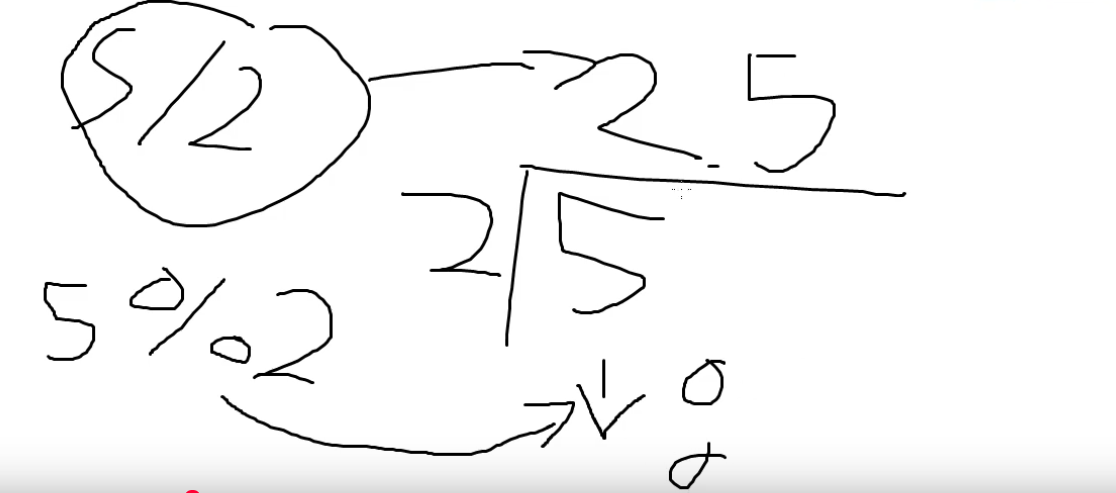 5/2 2.5
2 5
5%2
1 0
0